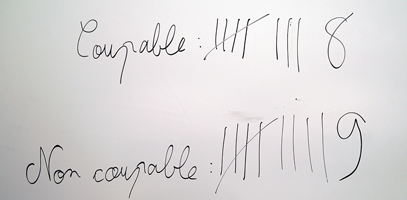 Coupable : |||| ||| 8
Non coupable : |||| |||| 9